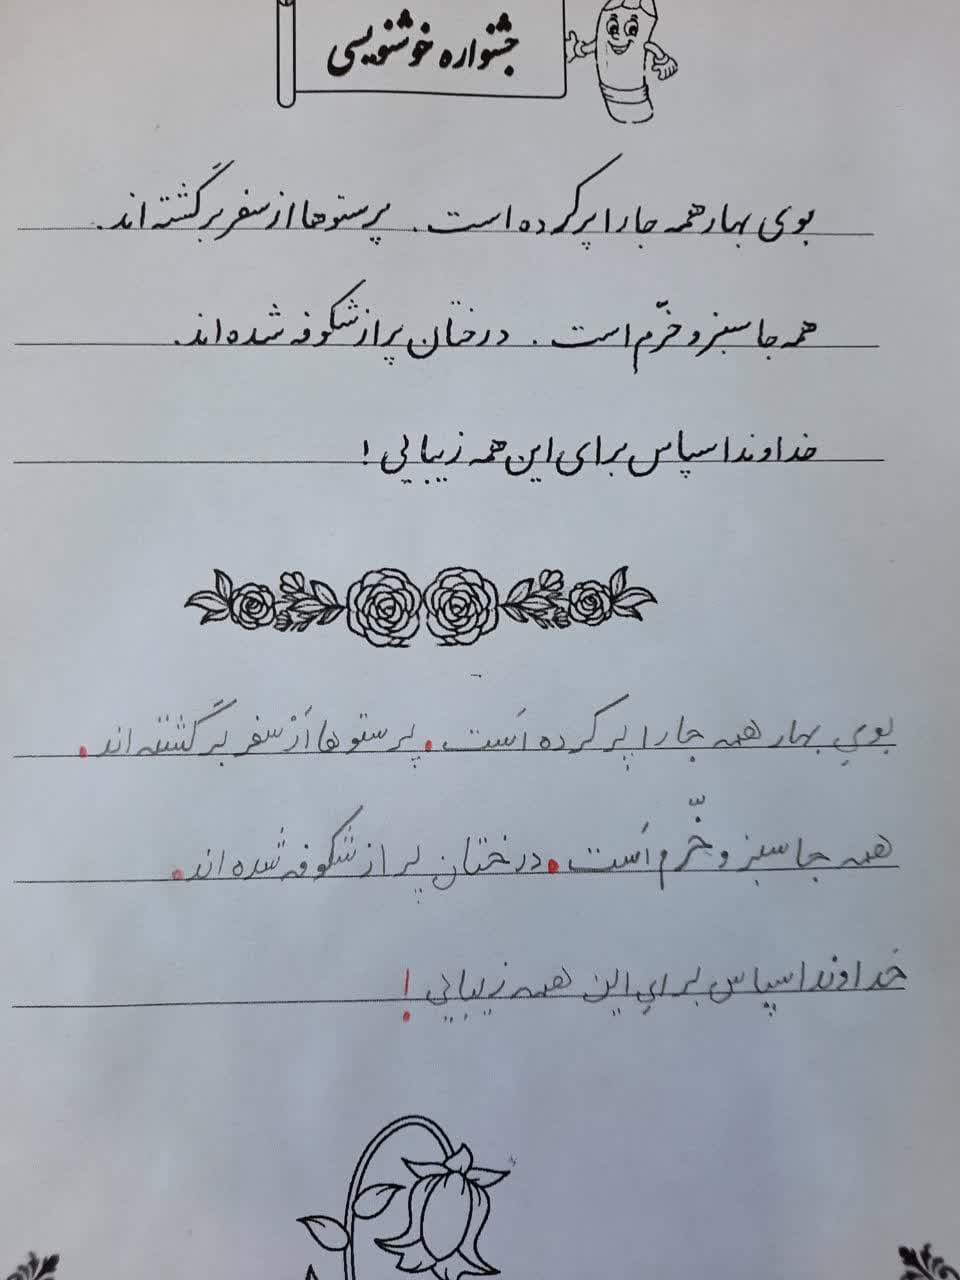 جشنواره خوشنویسی
بوی بهار همه جا را پر کرده است. پرستوها از سفر برگشته اند.
همه جا سبز و خرّم است. درختان پر از شکوفه شده اند.
خداوندا سپاس برای این همه زیبایی!
بوی بهار همه جا را پر کرده اَست. پرستوها اَز سفر برگشته اند.
همه جا سبز و خّرم اَست. درختان پر از شکوفه شده اند.
خداوندا سپاس برای این همه زیبایی!